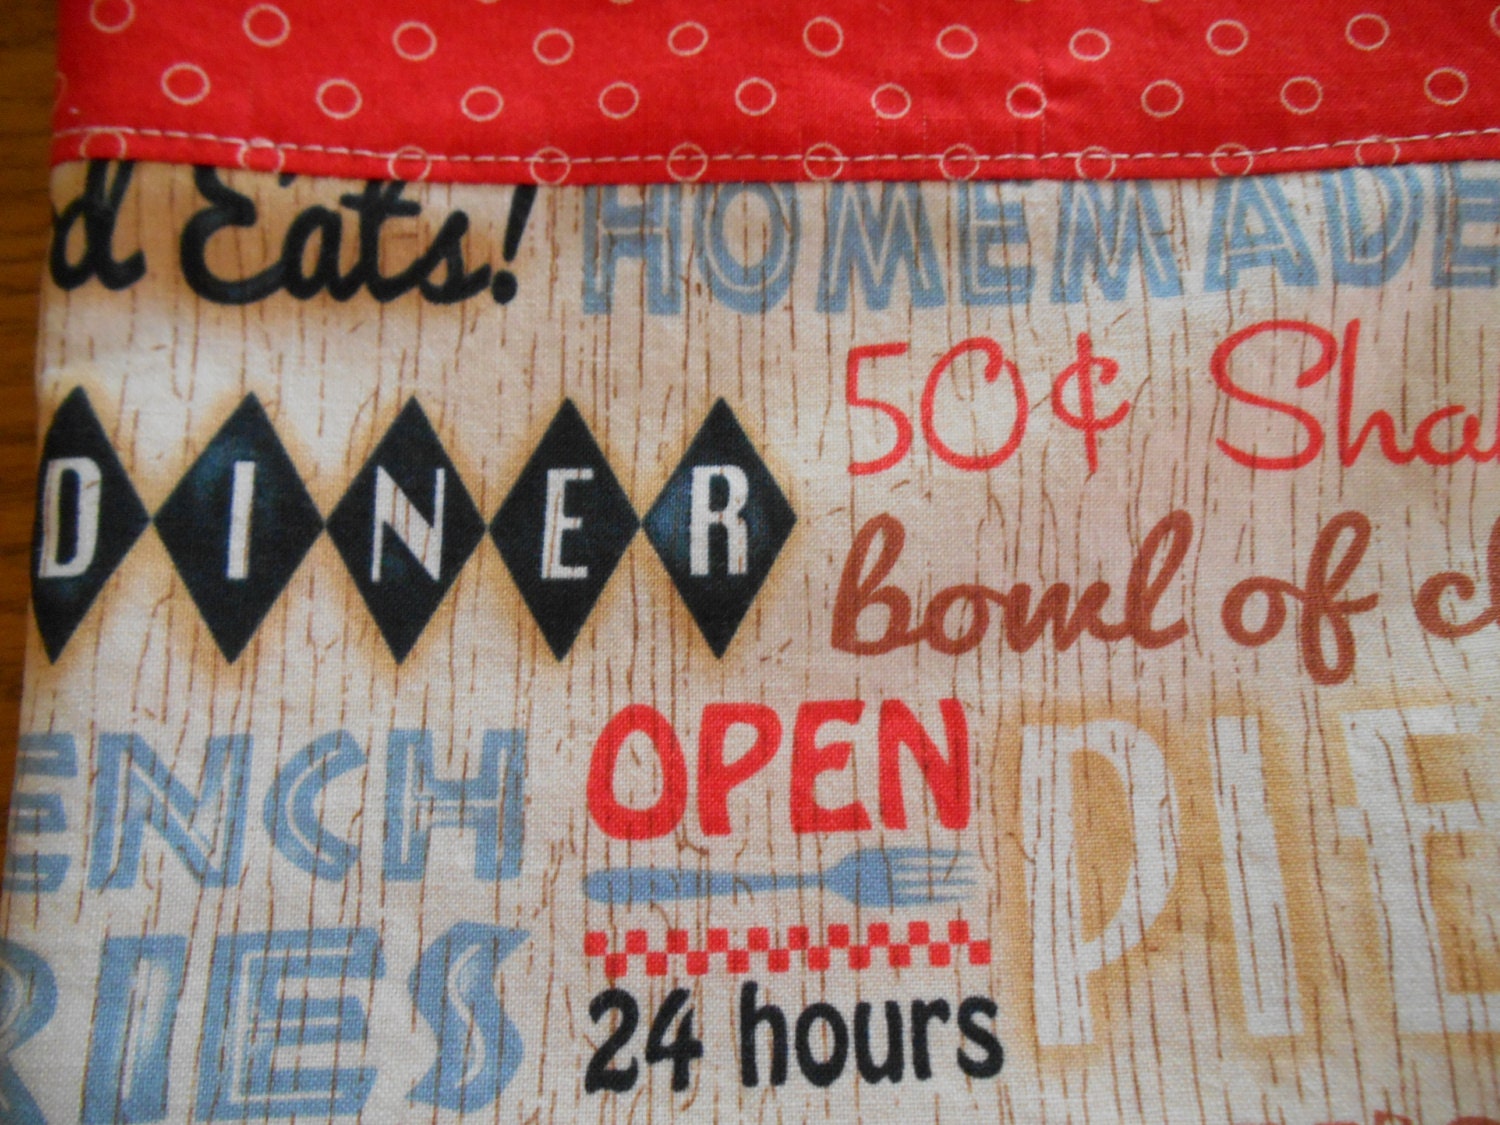 d Eats!
HOMEMADE
50¢ Sha
DINER
bowl of c
ENCH
RIES
OPEN
24 hours
PIE